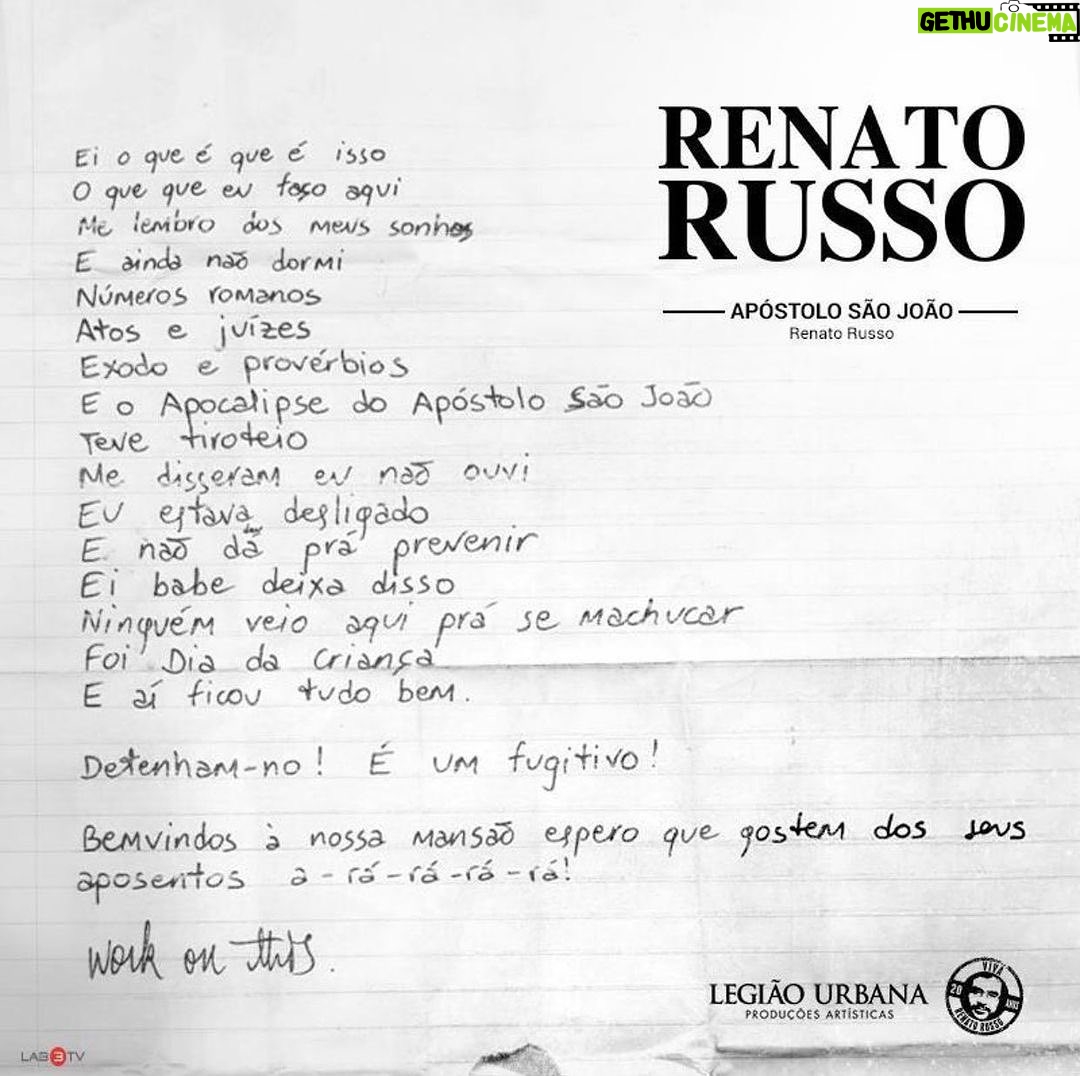 GETHUCINEMA
RENATO
RUSSO
APÓSTOLO SÃO JOÃO
Renato Russo
Ei o que é que é isso
O que que eu faço aqui
Me lembro dos meus sonhos
E ainda não dormi
Números romanos
Atos e juízes
Exodo e provérbios
E o Apocalipse do Apóstolo São João
Teve tiroteio
Me disseram eu não ouvi
Eu estava desligado
E não dá prá prevenir
Ei babe deixa disso
Ninguém veio aqui prá se machucar
Foi Dia da Criança
E aí ficou tudo bem.
Detenham-no! É um fugitivo!
Bemvindos à nossa mansão espero que gostem dos seus
aposentos a-rá-rá-rá-rá!
Work on this.
LEGIÃO URBANA
PRODUÇÕES ARTÍSTICAS
VIVA
20 ANOS
RENATO RUSSO
LAB3TV